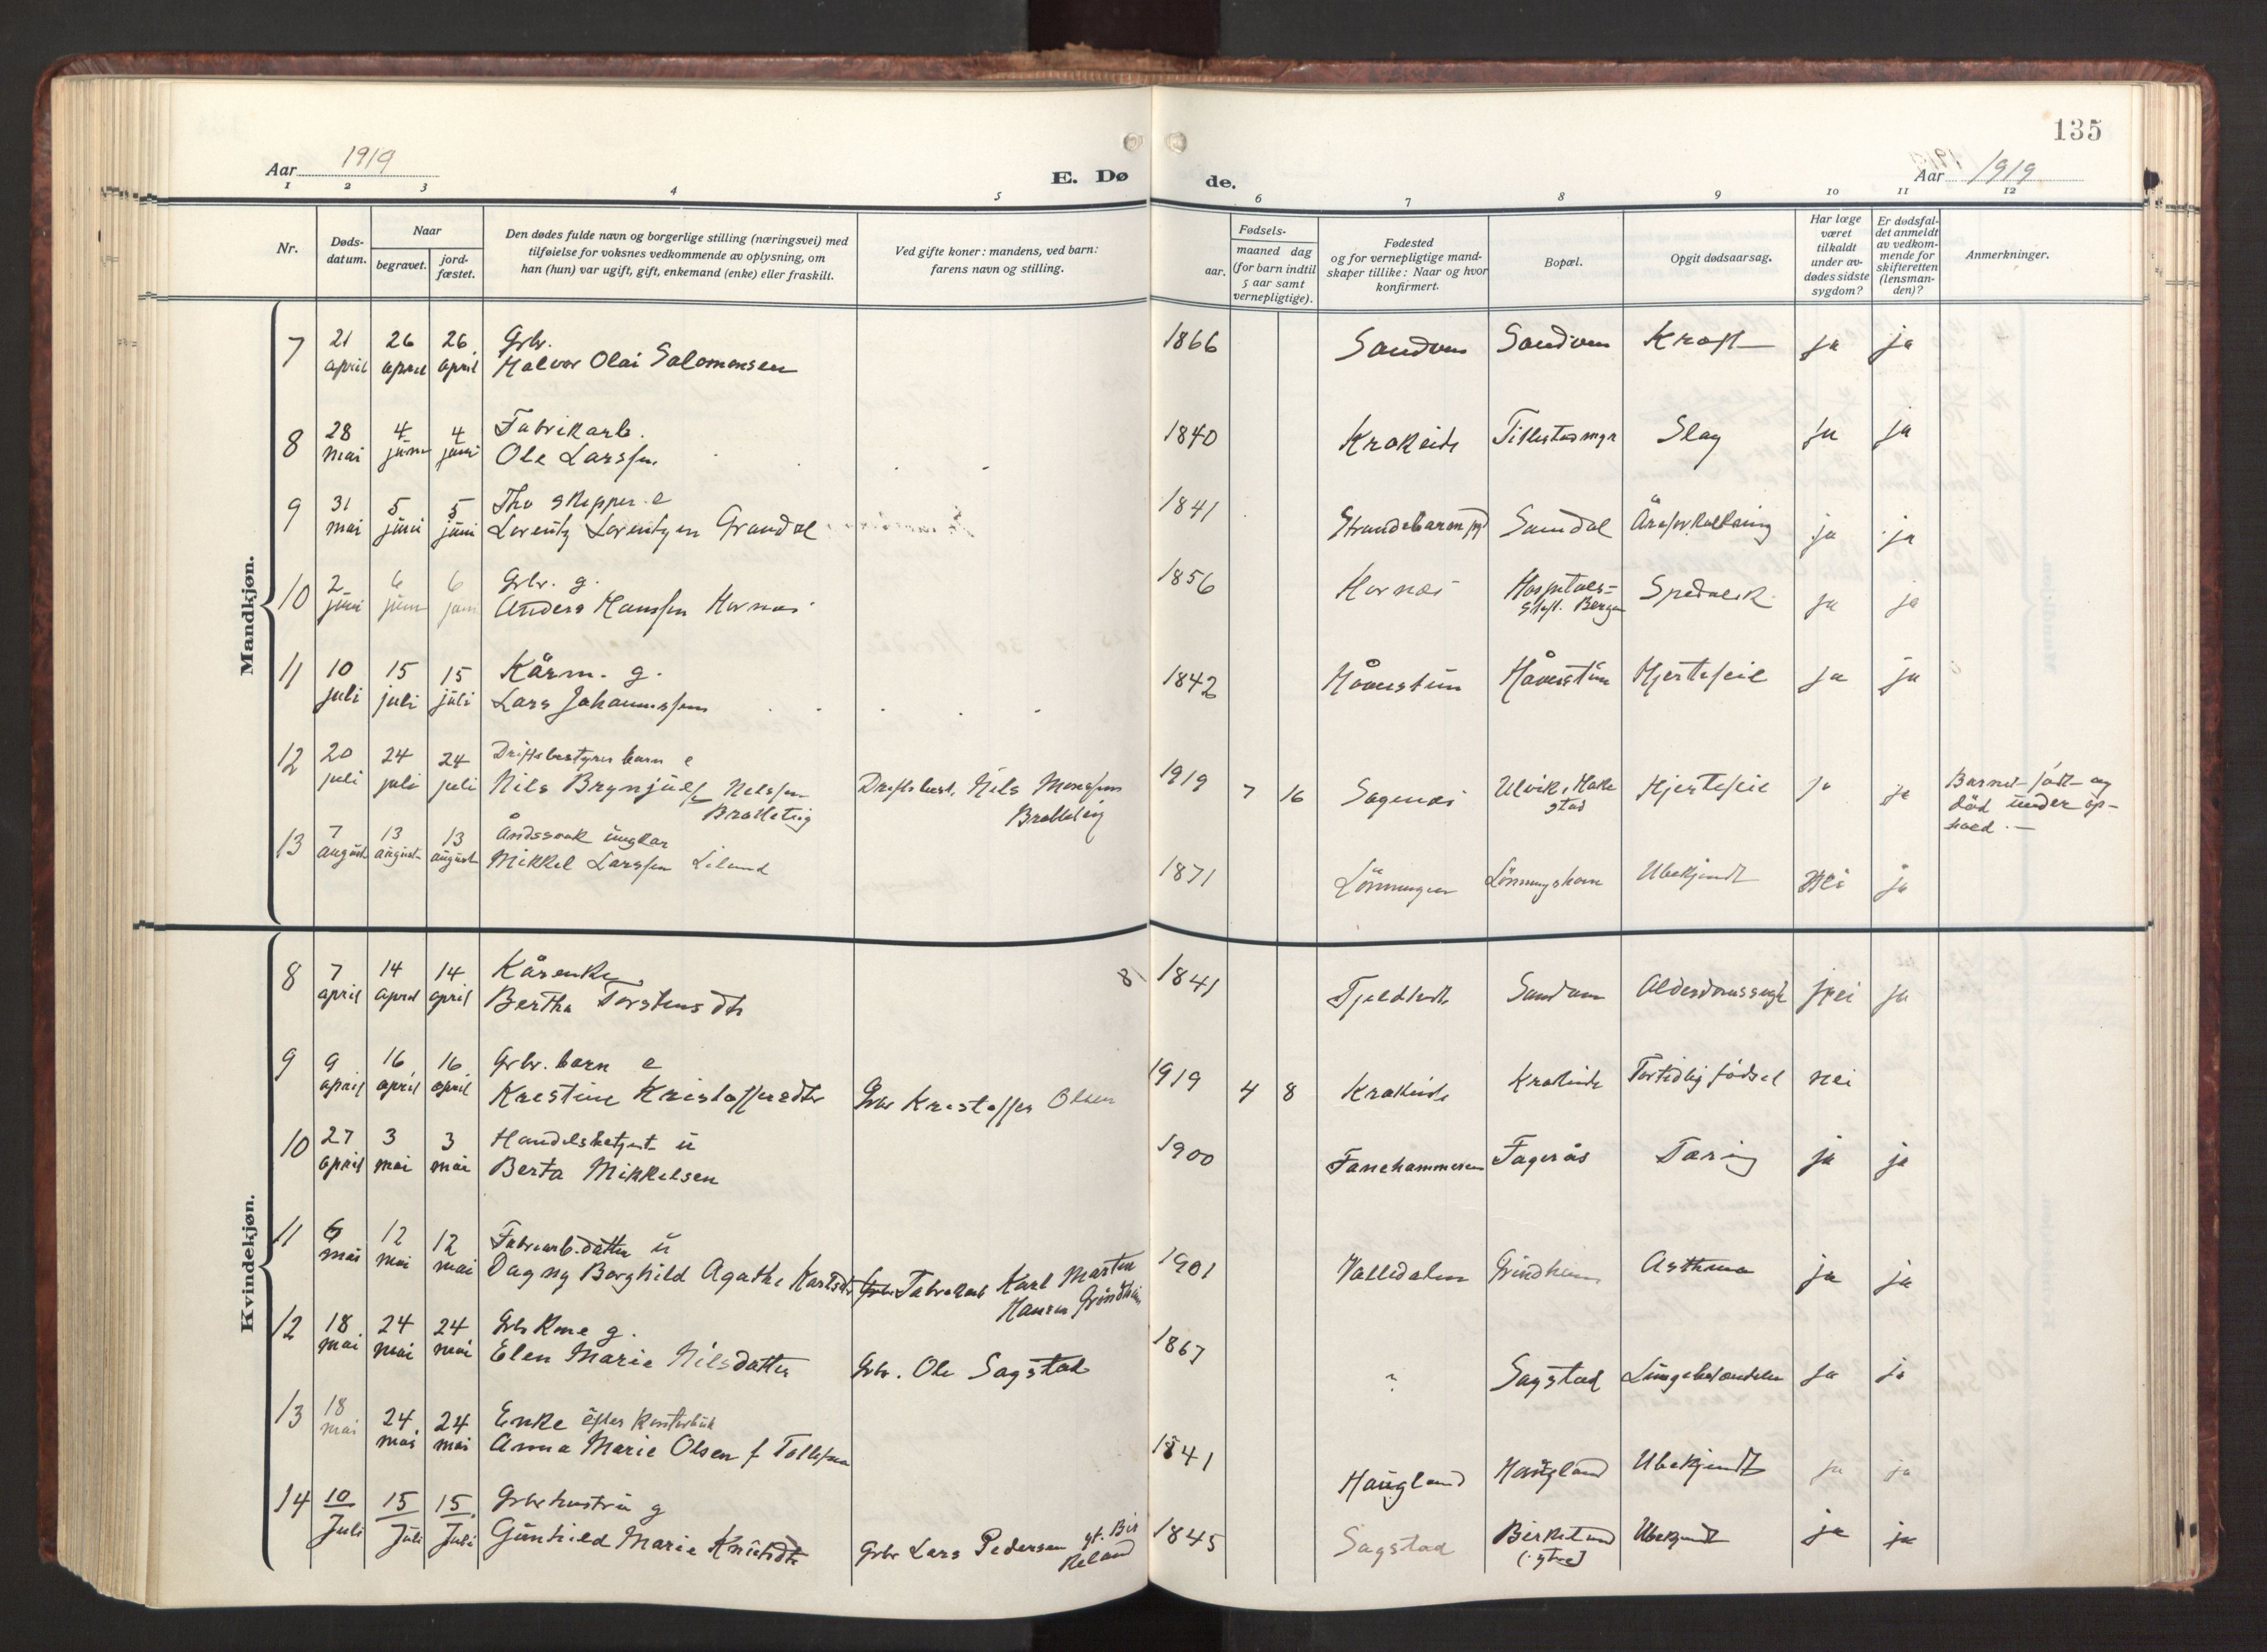 135
Aar 1919
E. Døde.
Aar 1919
1 2 3 4 5 6 7 8 9 10 11 12
Nr.
Døds-
datum.
Naar
begravet.
jord-
fæstet.
Den dødes fulde navn og borgerlige stilling (næringsvei) med
tilføielse for voksnes vedkommende av oplysning, om
han (hun) var ugift, gift, enkemand (enke) eller fraskilt.
Ved gifte koner: mandens, ved barn:
farens navn og stilling.
Fødsels-
aar.
maaned dag
(for barn indtil
5 aar samt
vernepligtige).
Fødested
og for vernepligtige mand-
skaper tillike: Naar og hvor
konfirmert.
Bopæl.
Opgit dødsaarsag.
Har læge
været
tilkaldt
under av-
dødes sidste
sygdom?
Er dødsfal-
det anmeldt
av vedkom-
mende for
skifteretten
(lensman-
den)?
Anmerkninger.
Mandkjøn.
7 21 april 26 april 26 april Grbr.
Halvor Olai Salomonsen 1866 Sandven Sandven Kræft ja ja
8 28 mai 4 juni 4 juni Fabrikarb.
Ole Larssen 1840 Krokeide Slag ja ja
9 31 mai 5 juni 5 juni skipper e
Lorentz Lorentzen Grandal 1841 Strandebarm Samdal Åreforkalkning ja ja
10 2 juni 6 juni 6 juni Grbr. g.
Anders Hanssen Hornæs 1856 Hornæs Hospitals=
Bergen Spedalsk ja ja
11 10 juli 15 juli 15 juli Kårm. g.
Lars Johannessen 1842 Håvestun Håvestun Hjertefeil ja ja
12 20 juli 24 juli 24 juli Driftsbestyrer barn e
Nils Brynjulf Nilssen
Bratteteig Driftsbest. Nils Monssen
Bratteteig 1919 7 16 Sagenæs Ulvik, Hjertefeil ja ja Barnet født og
død under op-
hold.—
13 7 august 13 august 13 august Åndssvak ungkar
Mikkel Larssen Liland 1871 Lønningen Ubekjendt nei ja
Kvindekjøn.
8 7 april 14 april 14 april Kårenke
Bertha Torstensdtr 81 1841 Sandven nei ja
9 9 april 16 april 16 april Grbr. barn e
Kristine Kristoffersdtr Grbr Kristoffer Olsen 1919 4 8 Krokeide Krokeide Fortidlig fødsel nei
10 27 april 3 mai 3 mai Handelsbetjent u
Berta Mikkelsen 1900 Fanehammeren Fagerås Tæring ja ja
11 6 mai 12 mai 12 mai Fabrikarb. datter u
Dagny Borghild Agathe Karlsdtr Fabrikarb Karl Martin
Hansen Grindheim 1901 Valledalen Grindheim Asthma ja ja
12 18 mai 24 mai 24 mai Grbr kone g.
Elen Marie Nilsdatter Grbr. Ole Sagstad 1867 ? Sagstad Lungebetændelse ja ja
13 18 mai 24 mai 24 mai Enke efter
Anna Marie Olsen f Tollefsen 1841 Haugland Haugland Ubekjendt ja ja
14 10 Juli 15 Juli 15 Juli Grbr hustru g
Gunhild Marie Knutsdtr Grbr Lars Pedersen yt. Bir
keland 1845 Sagstad Birkeland
(ytre) Ubekjendt ja ja